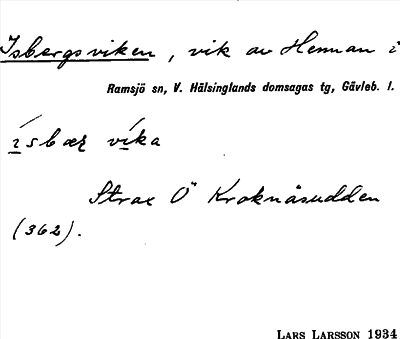 Isbergsviken, vik av Hennan i
Ramsjö sn, V. Hälsinglands domsagas tg, Gävleb. l.
ísbær víka
Strax Ö Kroknäsudden
(362).
LARS LARSSON 1934